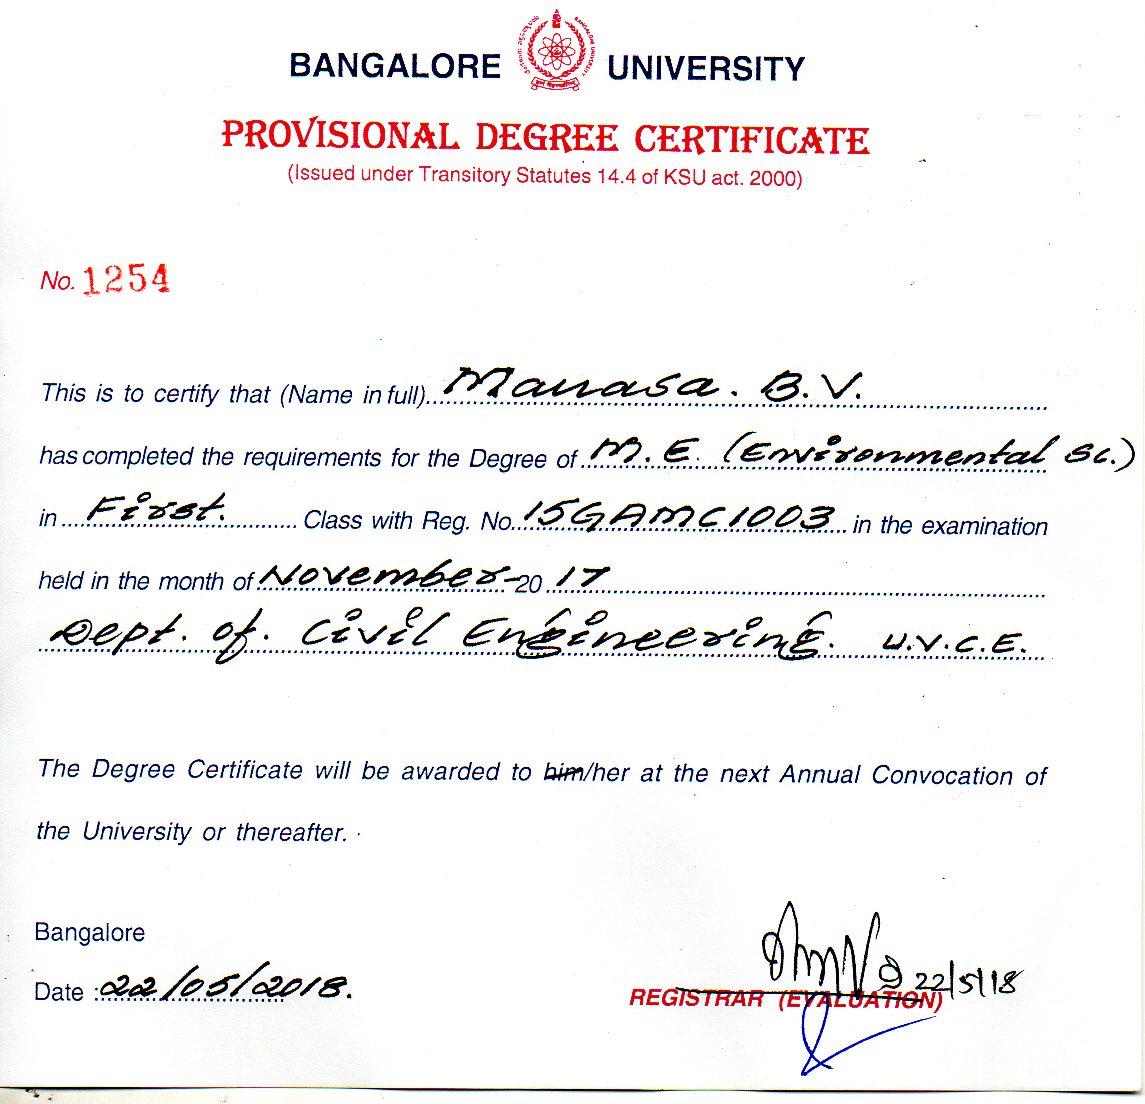 BANGALORE UNIVERSITY
PROVISIONAL DEGREE CERTIFICATE
(Issued under Transitory Statutes 14.4 of KSU act. 2000)
No. 1254
This is to certify that (Name in full) Manasa. B.V.
has completed the requirements for the Degree of M.E. (Environmental Sc.)
in First. Class with Reg. No. 15GAMC1003 in the examination
held in the month of November-20 17
Dept. of. Civil Engineering. U.V.C.E.
The Degree Certificate will be awarded to him/her at the next Annual Convocation of
the University or thereafter.
Bangalore
Date : 22/05/2018.
22/5/18
REGISTRAR (EVALUATION)